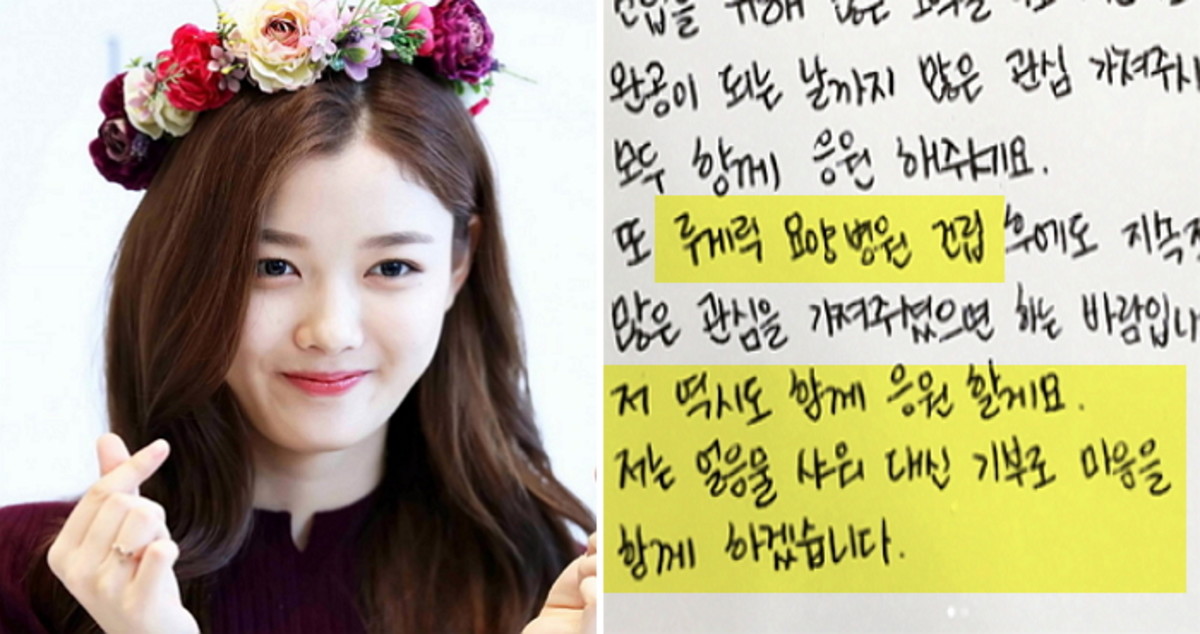 건립을 위해 많은
완공이 되는 날까지 많은 관심 가져주시
모두 함께 응원 해주세요.
또 루게릭 요양병원 건립 후에도 지속적
많은 관심을 가져주셨으면 하는 바람입니
저 역시도 함께 응원 할게요.
저는 얼음물 샤워 대신 기부로 마음을
함께 하겠습니다.